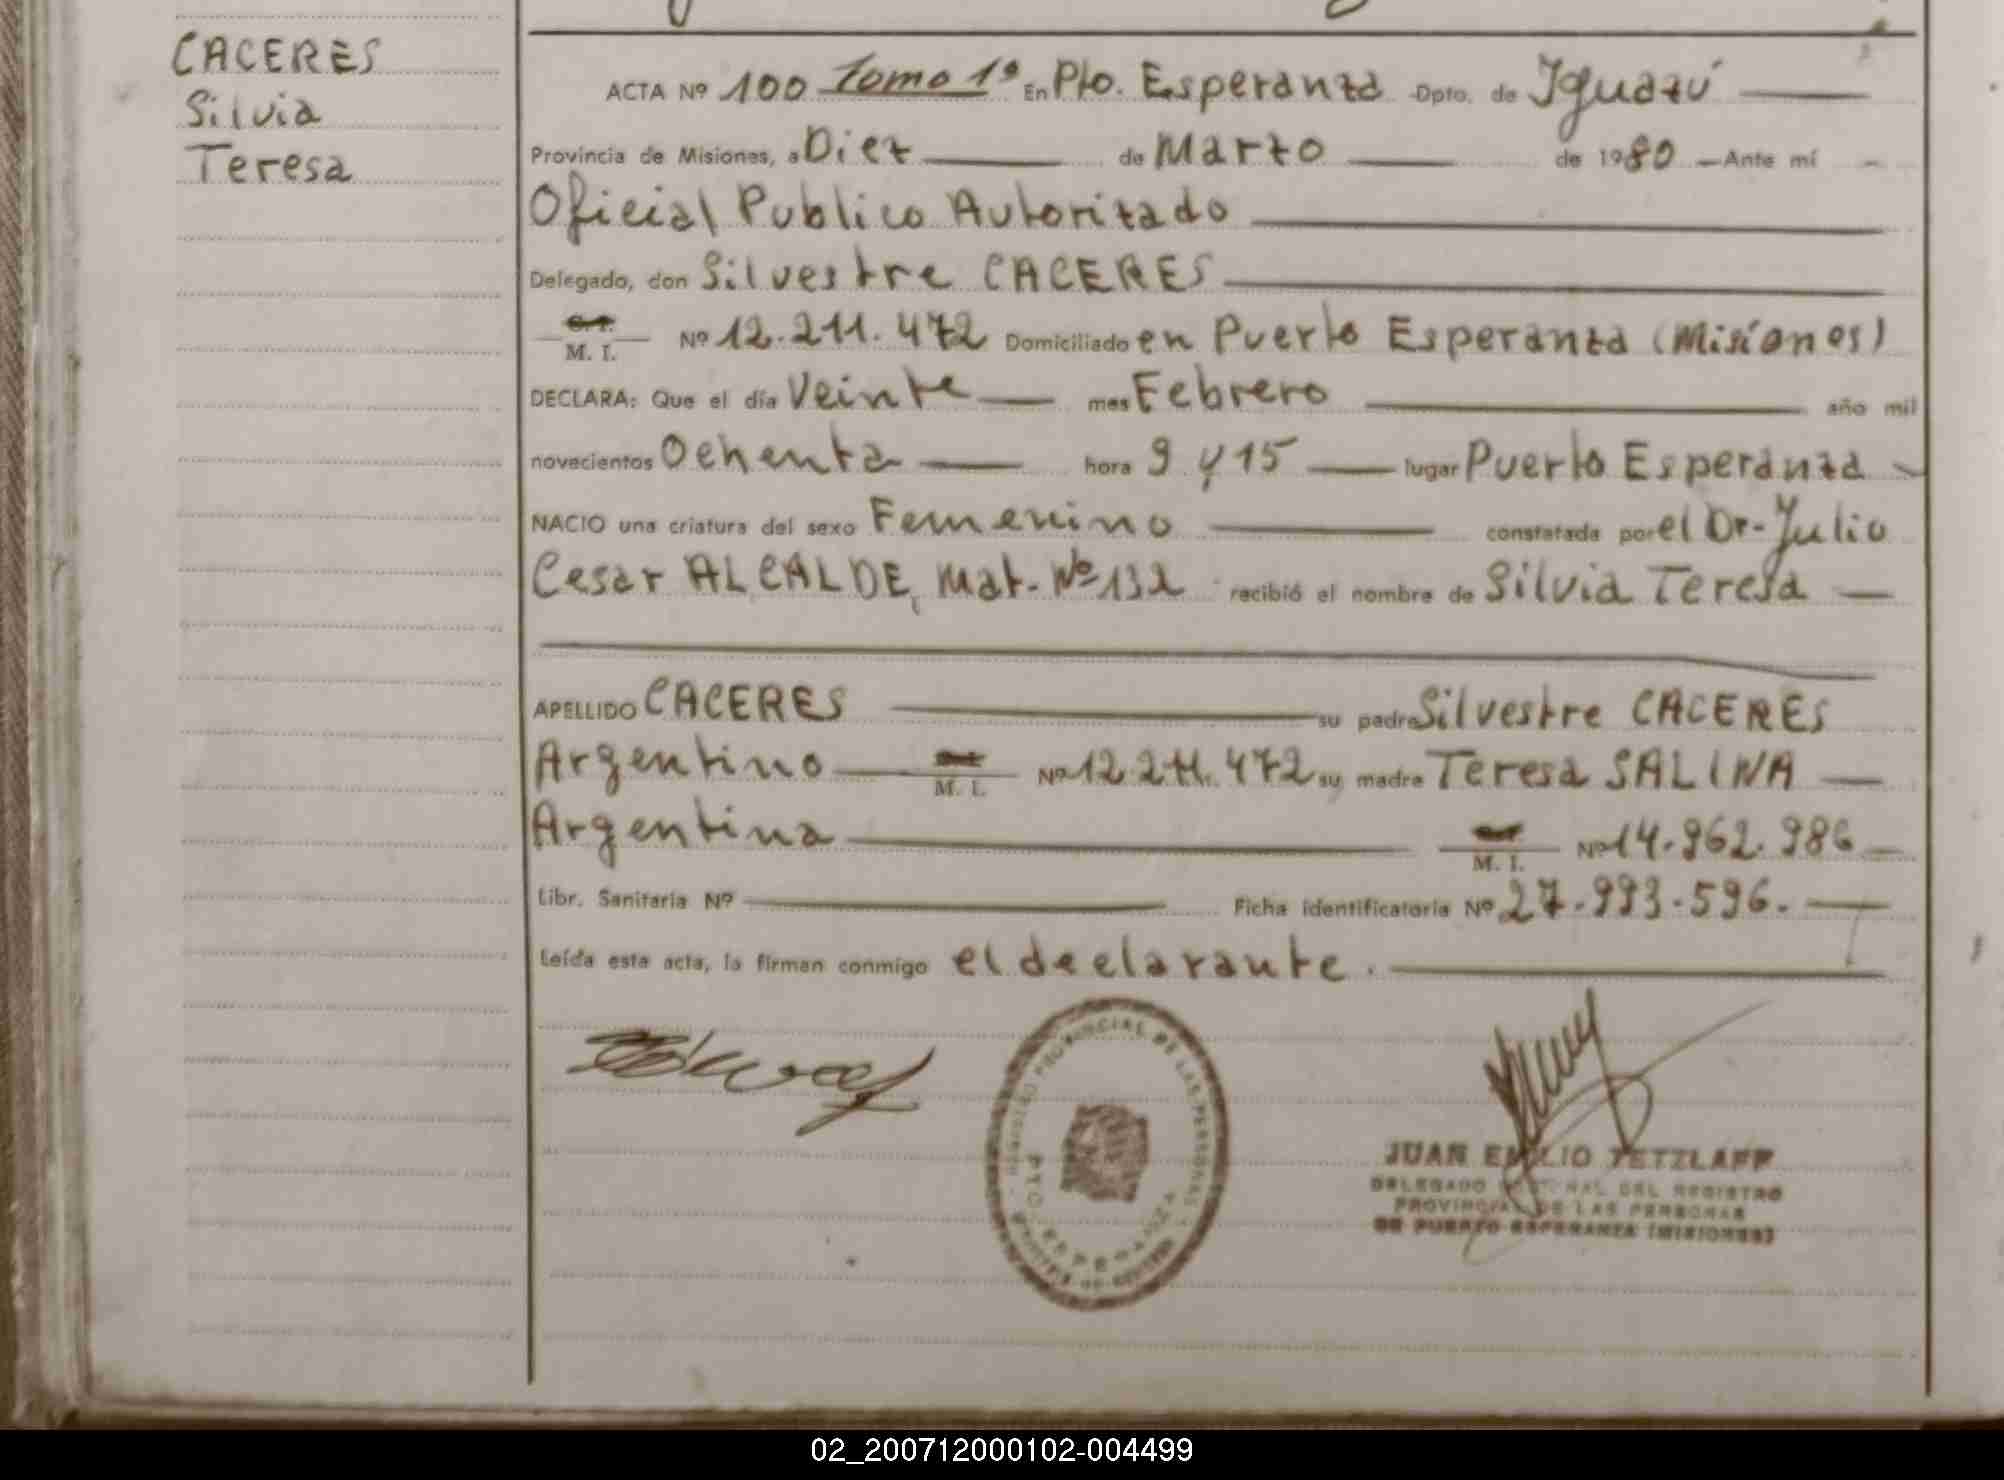 CACERES
Silvia
Teresa
ACTA Nº 100 Tomo 1º En Pto. Esperanza Dpto. de Iguazú
Provincia de Misiones, a Diez de Marzo de 1980 — Ante mí
Oficial Publico Autorizado
Delegado, don Silvestre CACERES
M. I. Nº 12.211.472 Domiciliado en Puerto Esperanza (Misiones)
DECLARA: Que el día Veinte mes Febrero año mil
novecientos Ochenta hora 9 y 15 lugar Puerto Esperanza
NACIO una criatura del sexo Femenino constatada por el Dr. Julio
Cesar ALCALDE, Mat. Nº 132 recibió el nombre de Silvia Teresa
APELLIDO CACERES su padre Silvestre CACERES
Argentino M. I. Nº 12.211.472 su madre Teresa SALINA
Argentina M. I. Nº 14.962.986
Libr. Sanitaria Nº Ficha identificatoria Nº 27.993.596.
Leída esta acta, la firman conmigo el declarante.
REGISTRO PROVINCIAL DE LAS PERSONAS
PTO. ESPERANZA
JUAN EMILIO TETZLAFF
DELEGADO SECCIONAL DEL REGISTRO
PROVINCIAL DE LAS PERSONAS
DE PUERTO ESPERANZA (MISIONES)
02_200712000102-004499